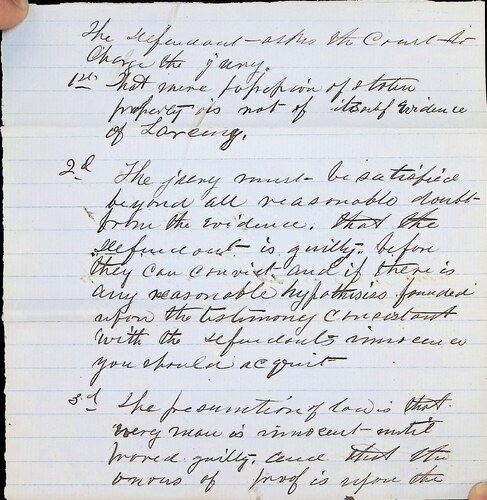 The defendant asks the Court to
Charge the jury.
1st That mere possession of stolen
property is not of itself Evidence
of Larceny.
2d The jury must be satisfied
beyond all reasonable doubt
from the Evidence. that the
defendant is guilty. before
they can convict and if there is
any reasonable hypothisis founded
upon the testimony Consistant
with the defendants innocence
you should acquit
3d The presumtion of law is that
every man is innocent until
proved guilty. and that the
onous of proof is upon the